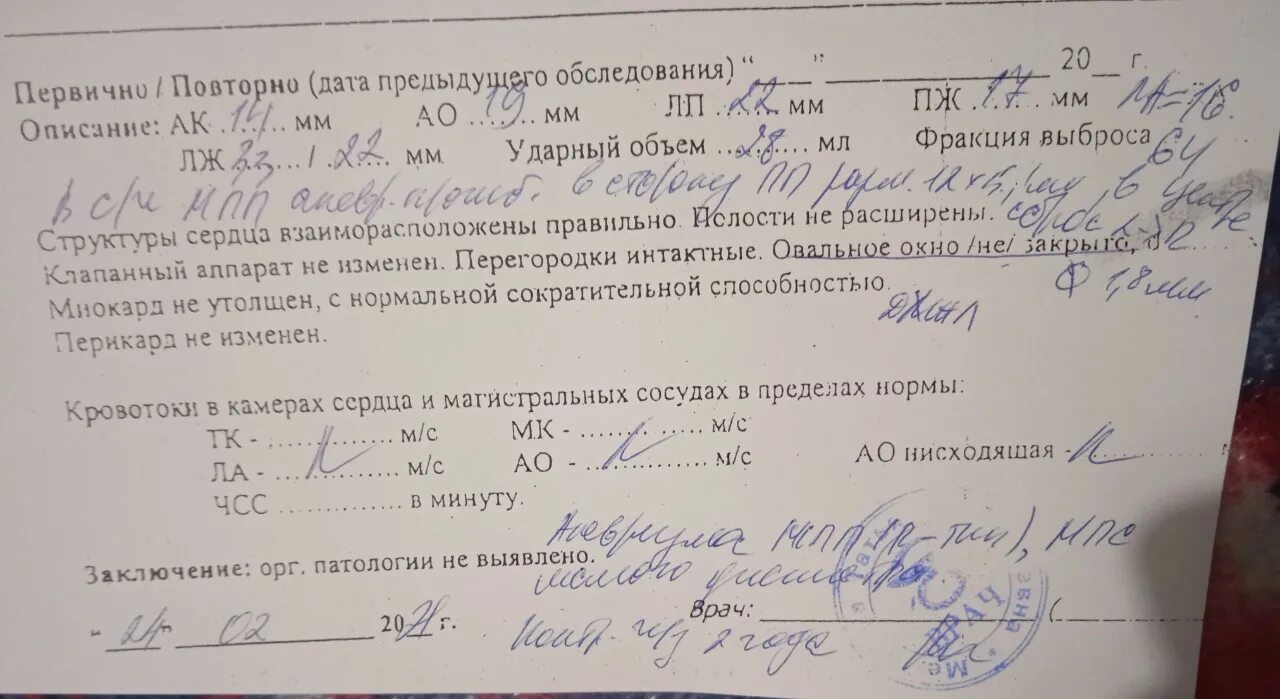 Первично / Повторно (дата предыдущего обследования) “____” ____________ 20__ г.
Описание: АК .14.... мм АО .19..... мм ЛП ..22.. мм ПЖ .17... мм ЛА=16.
ЛЖ 33..../.22.. мм Ударный объем ..28.... мл Фракция выброса 64
В с/ч МПП аневр. в сторону ПП разм. 12х5, в центре
Структуры сердца взаиморасположены правильно. Полости не расширены. сброс
Клапанный аппарат не изменен. Перегородки интактные. Овальное окно /не/ закрыто,
Миокард не утолщен, с нормальной сократительной способностью. 1,8 мм
Перикард не изменен.
Кровотоки в камерах сердца и магистральных сосудах в пределах нормы:
ТК - .............. м/с МК - .............. м/с
ЛА - .... N .... м/с АО - .... N .... м/с АО нисходящая - N ........
ЧСС .............. в минуту.
Аневризма МПП (R-тип), МПС
Заключение: орг. патологии не выявлено.
малого диаметра
Врач: ______________ (
“ 24 ” 02 2021 г. Контр. ч/з 2 года
ВРАЧ